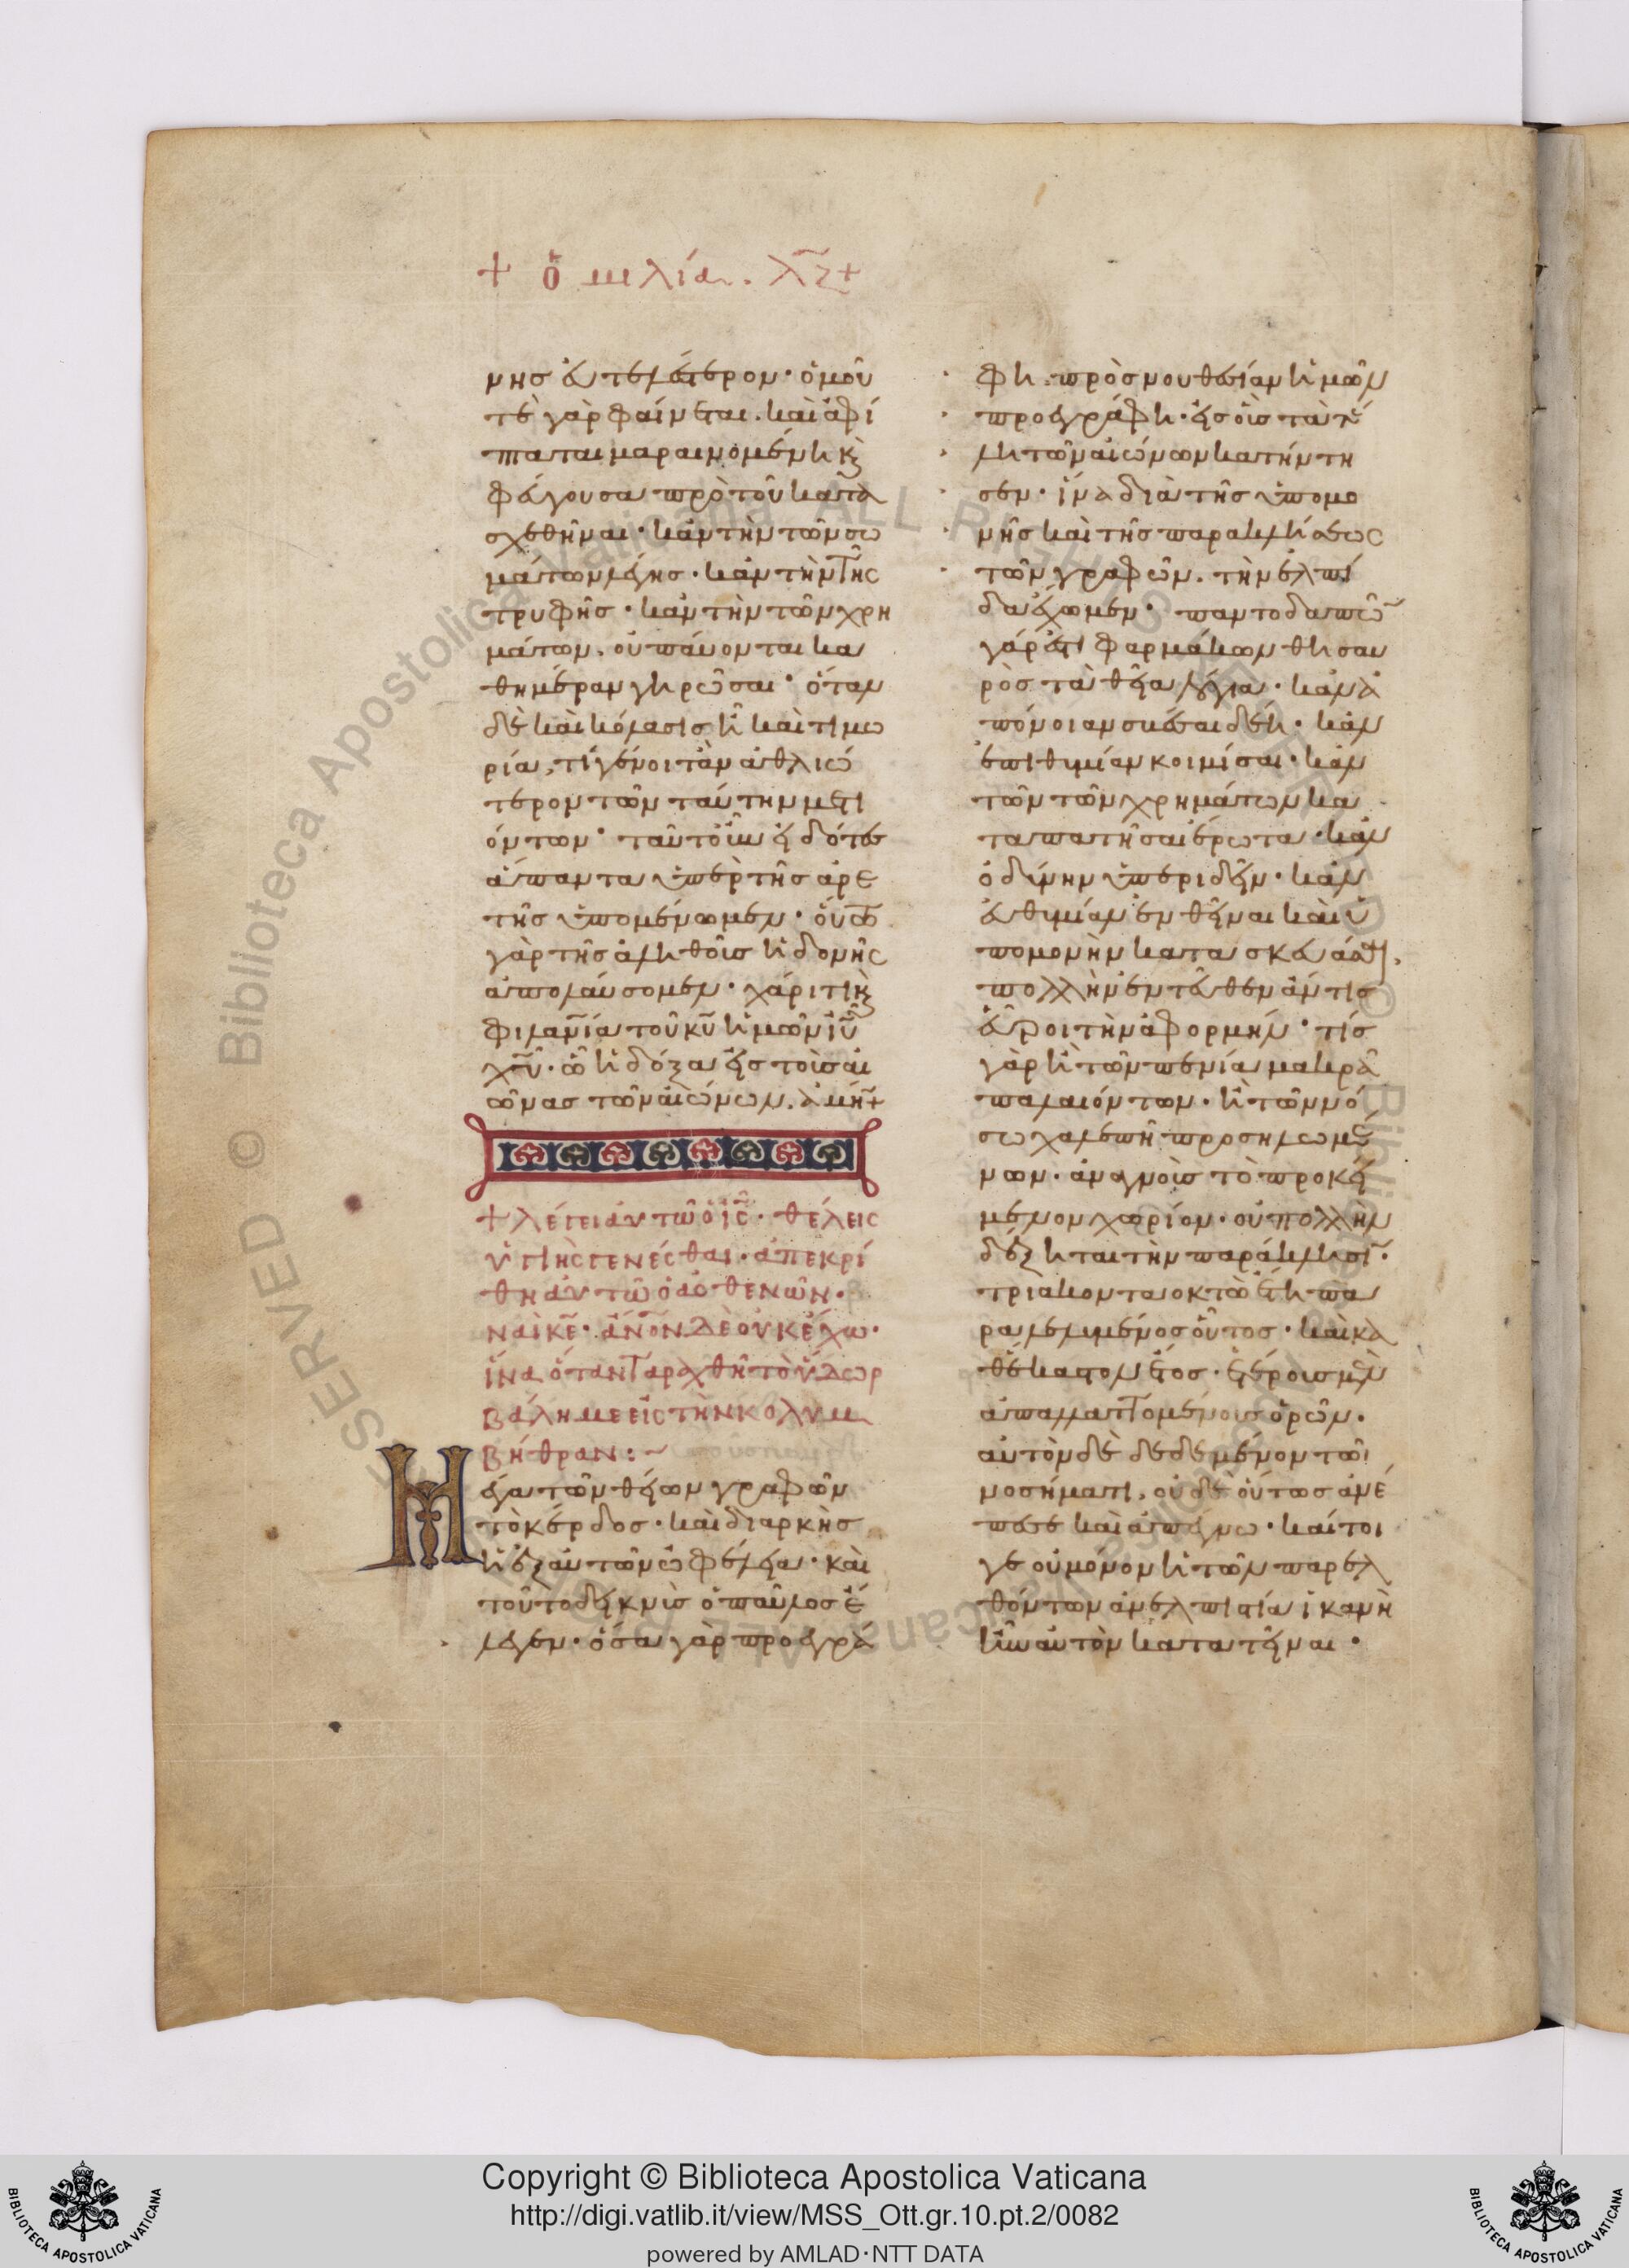 + ὁμιλία. λζ +
νης εὐτελέστερον· ὁμοῦ
τὲ γὰρ φαίνεται. καὶ ἀφί
πταται μαραινομένη κ(αὶ)
φεύγουσα πρὸ τοῦ κατα
σχεθῆναι· κἂν τὴν τῶν σω
μάτων λέγης· κἂν τὴν τῆς
τρυφῆς· κἂν τὴν τῶν χρη
μάτων. οὐ παύονται κα
θημέραν γηρῶσαι· ὅταν
δὲ καὶ κόλασις ἦ καὶ τιμω
ρία, τί γένοιτ ἂν ἀθλιώ
τερον τῶν ταύτην μετι
όντων· ταῦτ οὖν εἰδότες
ἅπαντα ὑπὲρ τῆς ἀρε
τῆς ὑπομένωμεν· οὕτω
γὰρ τῆς ἀληθοῦς ἡδονῆς
ἀπολαύσομεν· χάριτι κ(αὶ)
φιλανΐα τοῦ κῡ ἡμῶν ῑῡ
χῡ· ὧ ἡ δόξα εἰς τοὺς αἰ
ῶνας τῶν αἰώνων. ἀμήν +
+ λέγει αὐτῶ ὁ ῑς̄· θέλεις
ὑγιὴς γενέσθαι· ἀπεκρί
θη αὐτῶ ὁ ἀσθενῶν·
ναὶ κε̄· ᾱν̄ον δὲ οὐκ ἔχω·
ἵνα ὅταν ταραχθῆ τὸ ὕδωρ
βάλη με εἰς τὴν κολυμ
βήθραν:~
Μ
έγα τῶν θείων γραφῶν
τὸ κέρδος· καὶ διαρκὴς
ἡ ἐξ αὐτῶν ὠφέλεια· καὶ
τοῦτο δεικνὺς ὁ παῦλος ἔ
λεγεν· ὅσα γὰρ προεγρά
φη. πρὸς νουθεσίαν ἡμῶν
προεγράφη· εἰς οὓς τὰ τέ
λη τῶν αἰώνων κατήντη
σεν· ἵνα διὰ τῆς ὑπομο
νῆς καὶ τῆς παρακλήσεως
τῶν γραφῶν. τὴν ἐλπί
δα ἔχωμεν· παντοδαπῶν
γάρ ἐστι φαρμάκων θησαυ
ρὸς τὰ θεῖα λόγια· κἂν ἀ
πόνοιαν σβέσαι δέη· κἂν
ἐπιθυμίαν κοιμίσαι· κἂν
τῶν τῶν χρημάτων κα
ταπατῆσαι ἔρωτα· κἂν
ὀδύνην ὑπεριδεῖν· κἂν
εὐθυμίαν ἐνθεῖναι καὶ ὑ
πομονὴν κατασκευάσαι,
πολλὴν ἐντεῦθεν ἄν τις
εὕροι τὴν ἀφορμήν· τίς
γὰρ ἢ τῶν πενία μακρᾶ
παλαιόντων· ἢ τῶν νό
σω χαλεπῆ προσηλωμέ
νων· ἀναγνοὺς τὸ προκεί
μενον χωρίον· οὐ πολλὴν
δέξηται τὴν παράκλησιν·
τριακονταοκτὼ ἔτη πα
ραλελυμένος οὗτος· καὶ κα
θέκαστον ἔτος· ἑτέρους μὲν
ἀπαλλαττομένους ὁρῶν·
αὐτὸν δὲ δεδεμένον τῶ
νοσήματι, οὐδὲ οὕτως ἀνέ
πεσε καὶ ἀπέγνω· καίτοι
γε οὐ μόνον ἡ τῶν παρελ
θόντων ἀνελπιστία ἱκανὴ
ἦν αὐτὸν κατατεῖναι·
Copyright © Biblioteca Apostolica Vaticana
http://digi.vatlib.it/view/MSS_Ott.gr.10.pt.2/0082
powered by AMLAD·NTT DATA
BIBLIOTECA APOSTOLICA VATICANA
BIBLIOTECA APOSTOLICA VATICANA